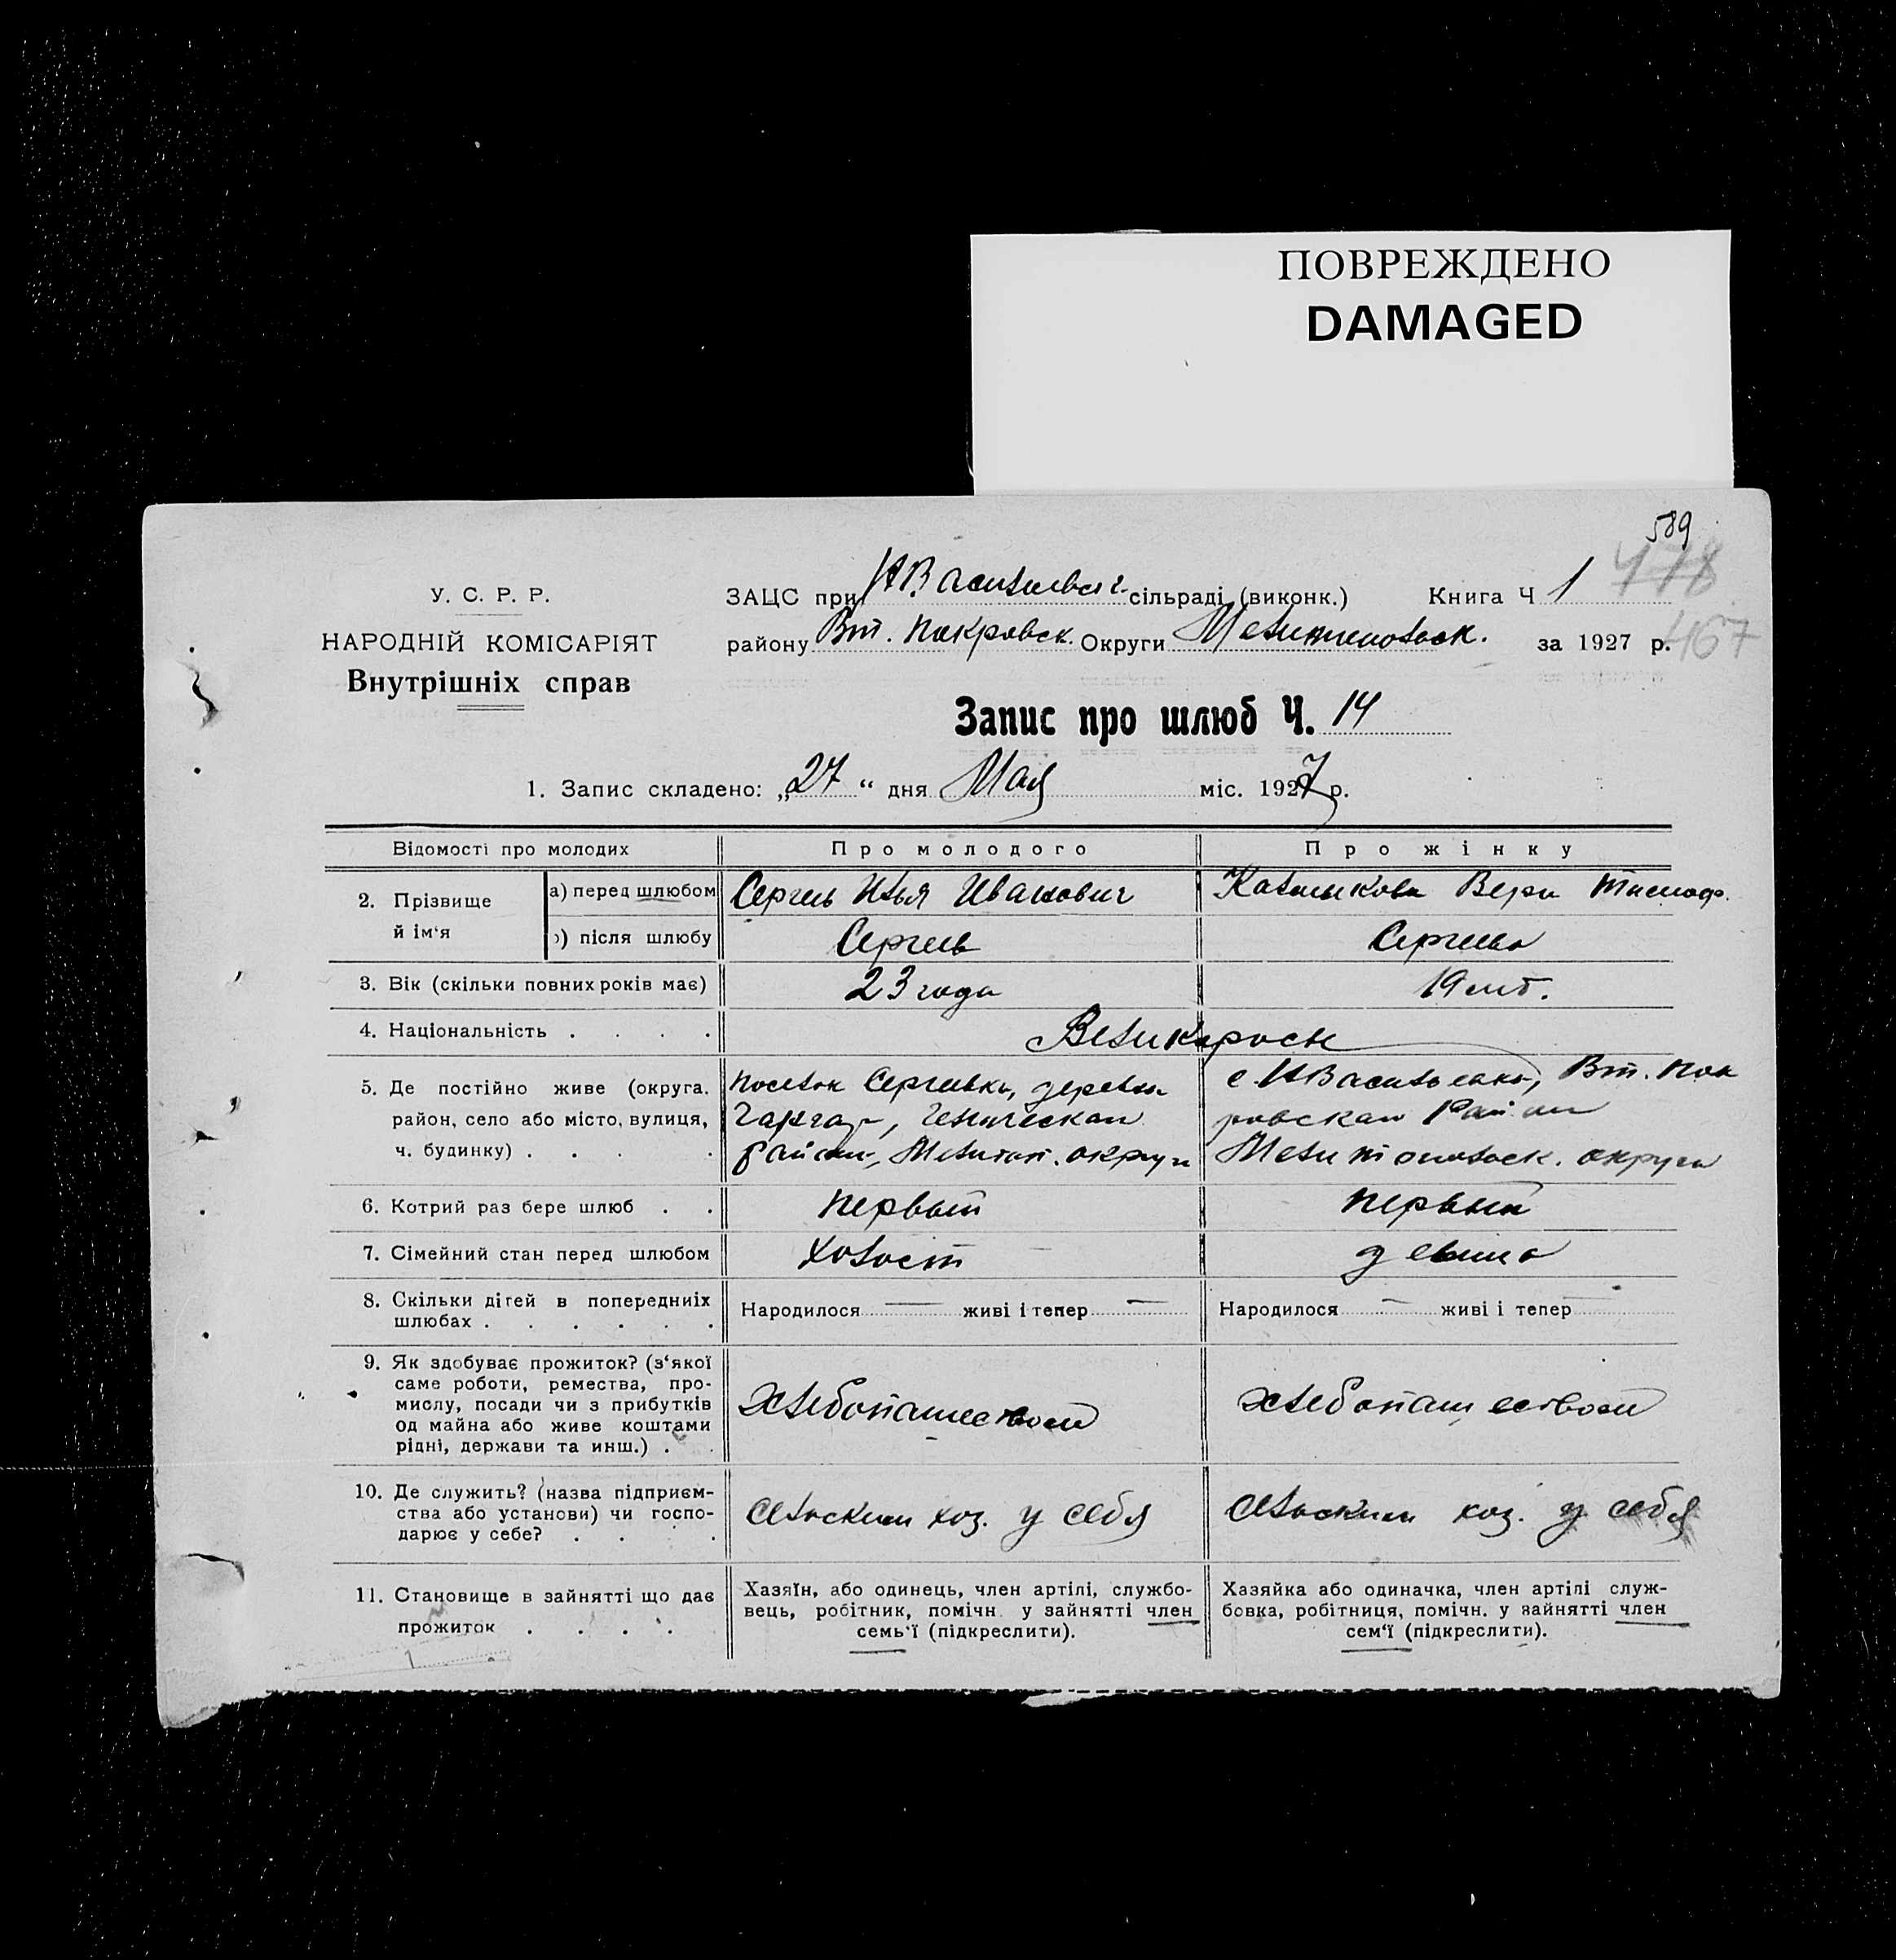 ПОВРЕЖДЕНО
DAMAGED
589
478
467
У. С. Р. Р.
НАРОДНІЙ КОМІСАРІЯТ
Внутрішніх справ
ЗАЦС при сільраді (виконк.) Книга Ч 1
району Вт. Покровск. Округи за 1927 р.
Запис про шлюб Ч. 14
1. Запис складено: „27“ дня Мая міс. 1927 р.
Відомості про молодих Про молодого Про жінку
2. Прізвище й ім‘я а) перед шлюбом Сергеев Илья Иванович Вера Тимоф.
б) після шлюбу Сергеев Сергеева
3. Вік (скільки повних років має) 23 года 19 лет.
4. Національність . . . . Великоросы
5. Де постійно живе (округа, Поселок Сергеевка, деревня с. НВасильевка, Вт. Пок
район, село або місто, вулиця, Генического ровского Района
ч. будинку) . . . . района, Мелитоп. округи Мелитопольск. округи
6. Котрий раз бере шлюб . . Первый Первый
7. Сімейний стан перед шлюбом Холост девица
8. Скільки дітей в попередніх Народилося — живі і тепер — Народилося — живі і тепер —
шлюбах . . . . . .
9. Як здобуває прожиток? (з‘якої
саме роботи, ремества, про-
мислу, посади чи з прибутків Хлебопашеством Хлебопашеством
од майна або живе коштами
рідні, держави та инш.) . .
10. Де служить? (назва підприєм-
ства або установи) чи госпо- сельским хоз. у себя сельским хоз. у себя
дарює у себе? . . . .
11. Становище в зайнятті що дає Хазяїн, або одинець, член артілі, службо- Хазяйка або одиначка, член артілі служ-
прожиток . . . . вець, робітник, помічн. у зайнятті член бовка, робітниця, помічн. у зайнятті член
семь‘ї (підкреслити). сем‘ї (підкреслити).